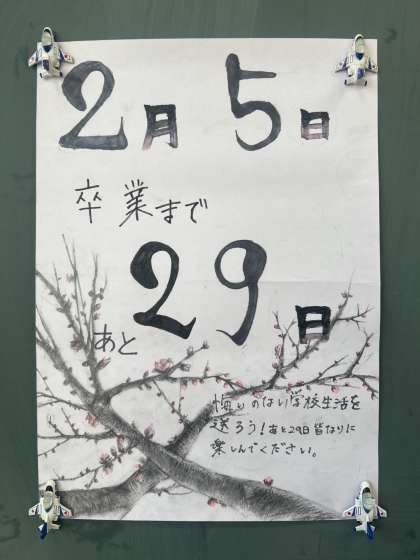 2月5日
卒業まで
あと29日
悔いのない学校生活を
送ろう！あと29日皆なりに
楽しんでください。